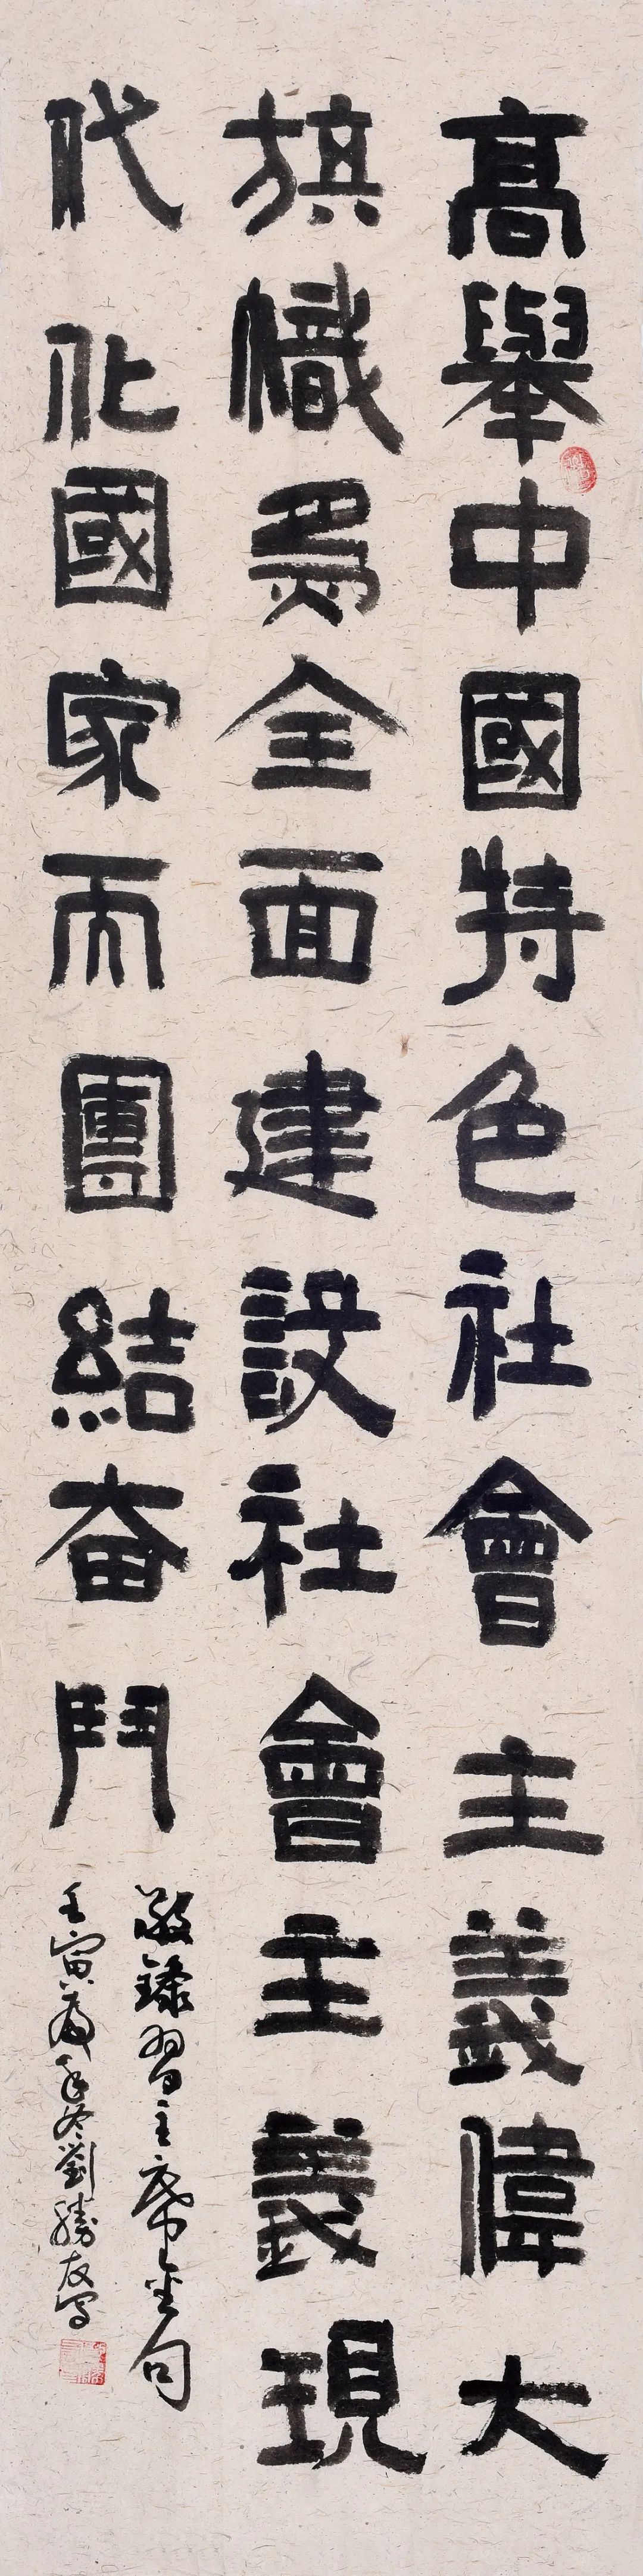 高舉中國特色社會主義偉大
旗幟為全面建設社會主義現
代化國家而團結奋鬥
敬録習主席金句
壬寅虎年冬劉勝友寫